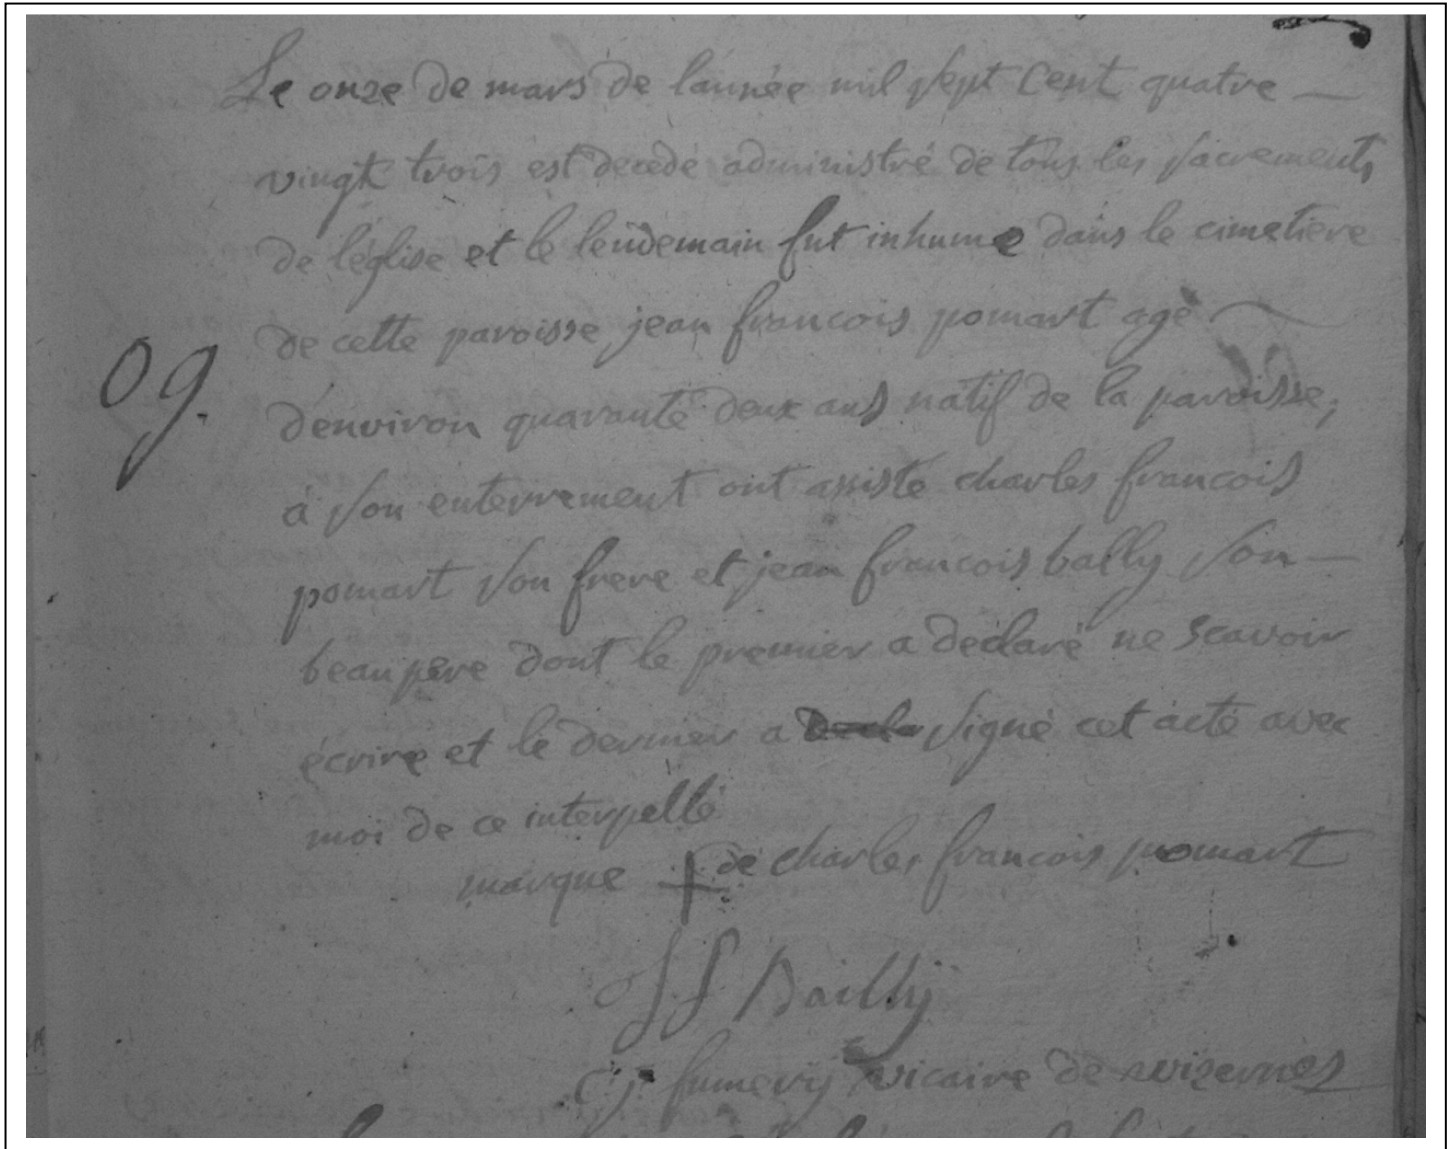 Le onze de mars de l'année mil sept cent quatre —
vingt trois est decedé administré de tous les sacrements
de l'église et le lendemain fut inhumé dans le cimetiere
de cette paroisse jean francois pomart agé
09.
d'environ quarante deux ans natif de la paroisse,
à son enterrement ont assisté charles francois
pomart son frere et jean francois bally son —
beaupere dont le premier a declaré ne scavoir
écrire et le dernier a signé cet acte avec
moi de ce interpellé
marque + de charles francois pomart
jf Bailly
c j fumery vicaire de wizernes